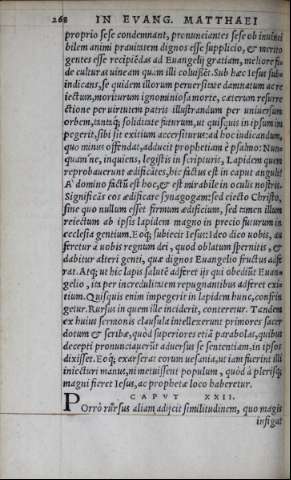 268 IN EVANG. MATTHAEI
proprio sese condemnant, pronunciantes sese ob inuinci
bilem animi prauitatem dignos esse supplicio, & merito
gentes esse recipiēdas ad Euangelij gratiam, meliore fi
de culturas uineam quam illi coluissēt. Sub hæc Iesus sub
indicans, se quidem illorum peruersitate damnatum ac re
iectum, moriturum ignominiosa morte, cæterum resurre
ctione per uirtutem patris illustrandum per uniuersum
orbem, tantaq; soliditate futurum, ut quisquis in ipsum im
pegerit, sibi sit exitium accersiturus: ad hoc indicandum,
quo minus offendat, adducit prophetiam è psalmo: Nun
quam'ne, inquiens, legistis in scripturis, Lapidem quem
reprobauerunt ædificātes, hic factus est in caput anguli?
A' domino factū est hoc, & est mirabile in oculis nostris.
Significās eos ædificare synagogam: sed eiecto Christo,
sine quo nullum esset firmum ædificium, sed tamen illum
reiectum ab ipsis lapidem magno in precio futurum in
ecclesia gentium. Eoq; subiecit Iesus: Ideo dico uobis, au
feretur à uobis regnum dei, quod oblatum spernitis, &
dabitur alteri genti, quæ dignos Euangelio fructus adfe
rat. Atq; ut hic lapis salutē adferet ijs qui obediūt Euan-
gelio, ita per incredulitatem repugnantibus adferet exi-
tium. Quisquis enim impegerit in lapidem hunc, confrin
getur. Rursus in quem ille inciderit, conteretur. Tandem
ex huius sermonis clausula intellexerunt primores sacer
dotum & scribæ, quòd superiores etiā parabolas, quibus
decepti pronunciauerūt aduersus se sententiam, in ipsos
dixisset. Eoq; exarserat eorum uesania, ut iam fuerint illi
iniecturi manus, ni metuissent populum, quòd à plerisq;
magni fieret Iesus, ac prophetæ loco haberetur.
CAPVT XXII.
POrrò rursus aliam adijcit similitudinem, quo magis
infigat